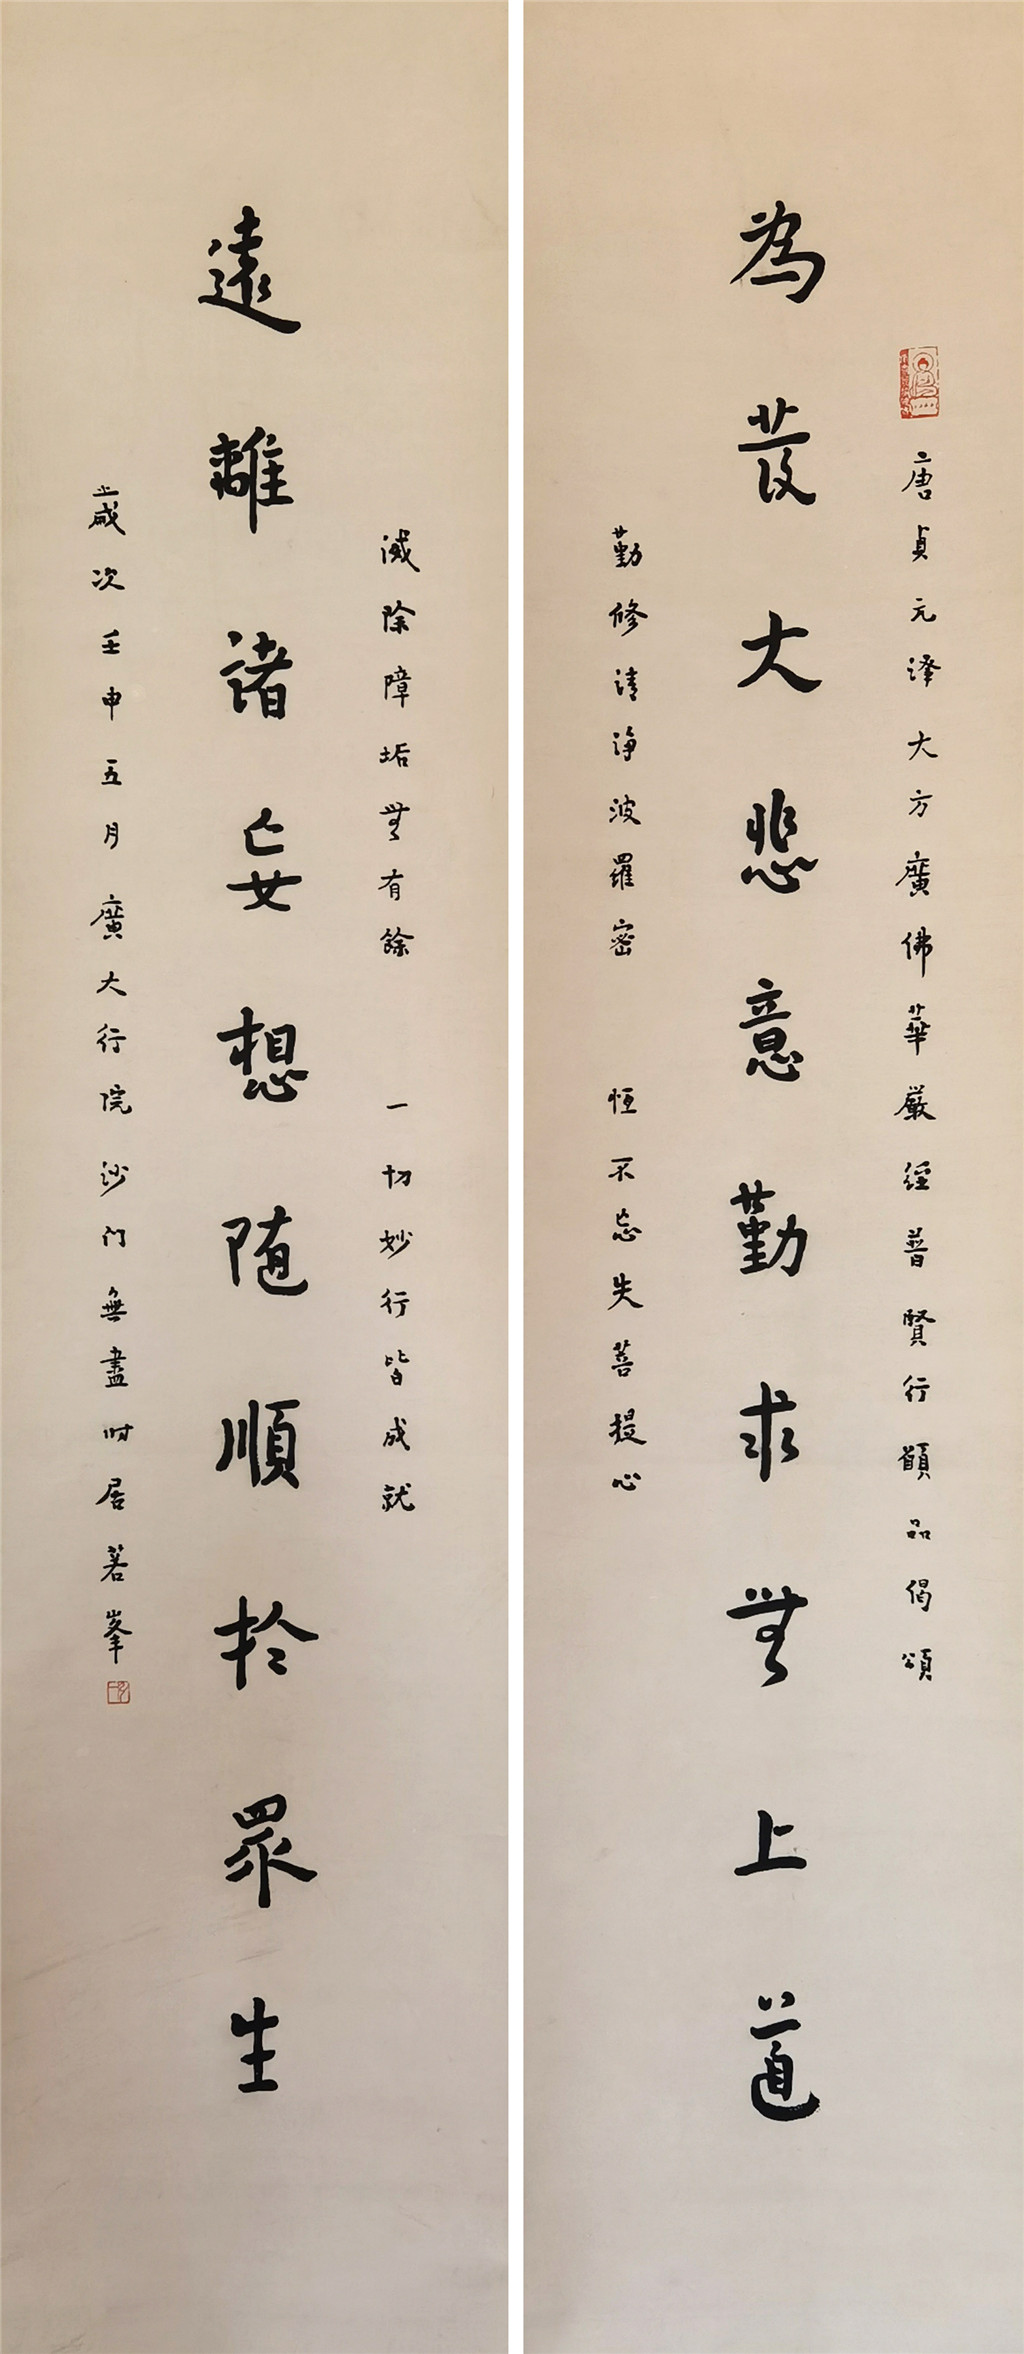 唐貞元譯大方廣佛華嚴經普賢行願品偈頌
為發大悲意勤求無上道
勤修清淨波羅密 恆不忘失菩提心
滅除障垢無有餘 一切妙行皆成就
遠離諸妄想隨順於眾生
歲次壬申五月廣大行院沙門無盡時居茖峯